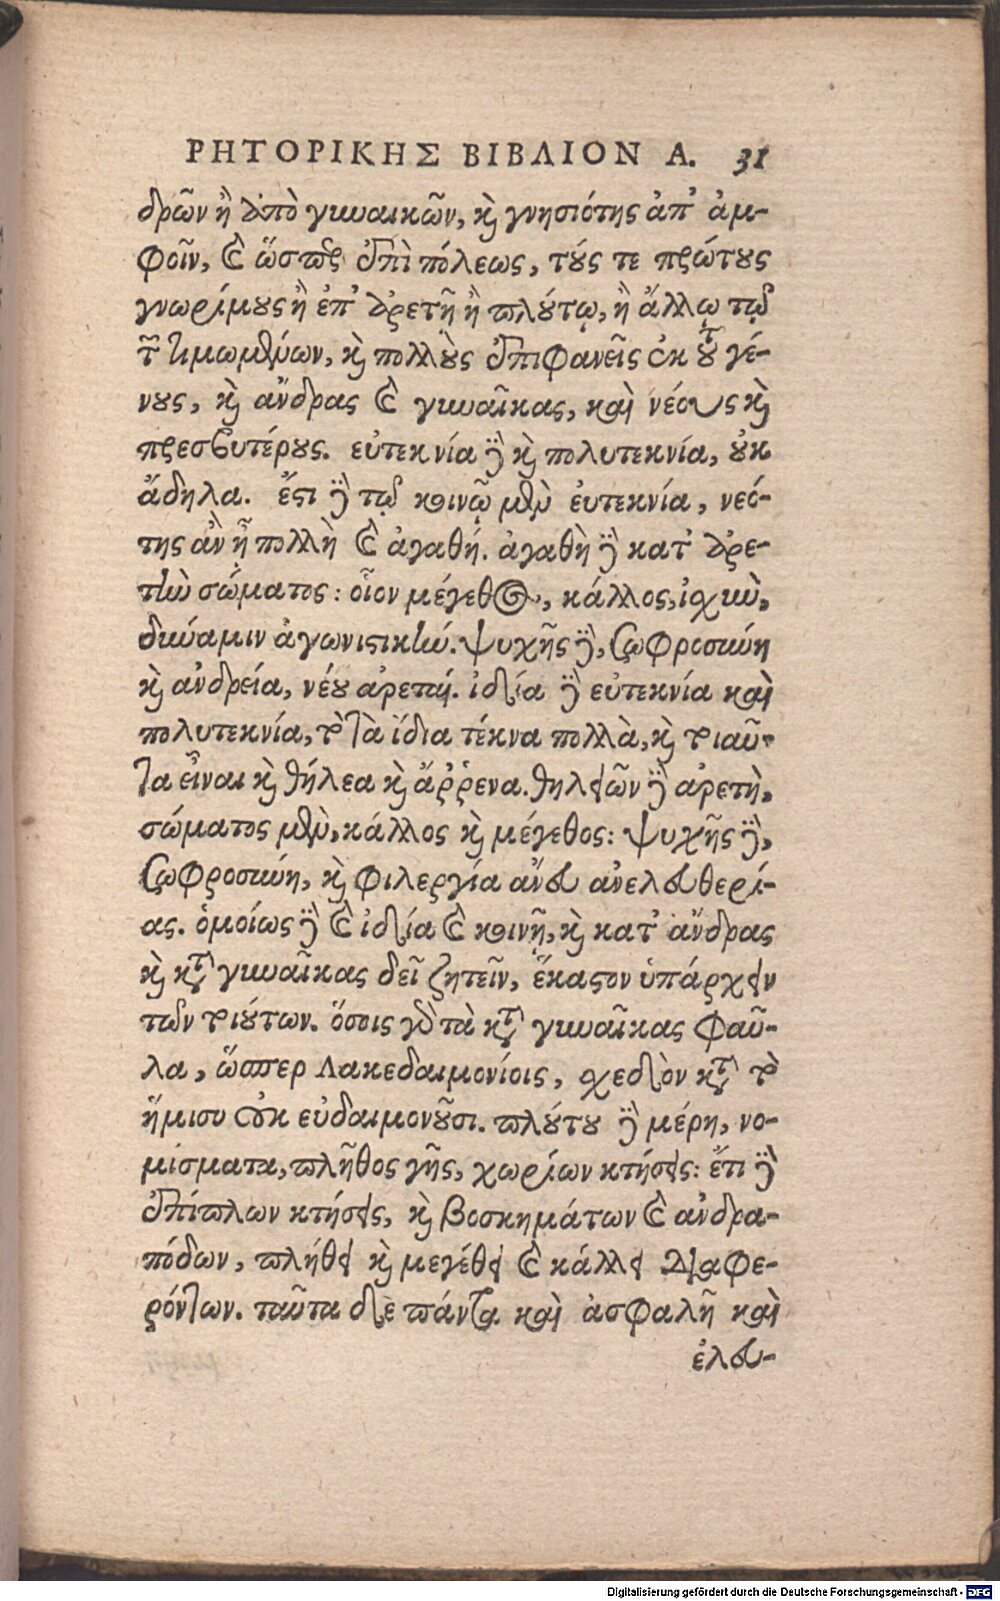 ΡΗΤΟΡΙΚΗΣ ΒΙΒΛΙΟΝ Α. 31
δρῶν ἢ ἀπὸ γυναικῶν, καὶ γνησιότης ἀπ' ἀμ-
φοῖν, καὶ ὥσπερ ἐπὶ πόλεως, τούς τε πρώτους
γνωρίμους ἢ ἐπ' ἀρετῇ ἢ πλούτῳ, ἢ ἄλλῳ τῳ
τῶν τιμωμένων, καὶ πολλοὺς ἐπιφανεῖς ἐκ τοῦ γέ-
νους, καὶ ἄνδρας καὶ γυναῖκας, καὶ νέους καὶ
πρεσβυτέρους. εὐτεκνία δὲ καὶ πολυτεκνία, οὐκ
ἄδηλα. ἔστι δὲ τῷ κοινῷ μὲν εὐτεκνία, νεό-
της ἂν ᾖ πολλὴ καὶ ἀγαθή. ἀγαθὴ δὲ κατ' ἀρε-
τὴν σώματος: οἷον μέγεθος, κάλλος, ἰσχὺν,
δύναμιν ἀγωνιστικήν. ψυχῆς δὲ, σωφροσύνη
καὶ ἀνδρεία, νέου ἀρεταί. ἰδίᾳ δὲ εὐτεκνία καὶ
πολυτεκνία, τὸ τὰ ἴδια τέκνα πολλὰ, καὶ τοιαῦ-
τα εἶναι καὶ θήλεα καὶ ἄῤῥενα. θηλειῶν δὲ ἀρετὴ,
σώματος μὲν, κάλλος καὶ μέγεθος: ψυχῆς δὲ,
σωφροσύνη, καὶ φιλεργία ἄνευ ἀνελευθερί-
ας. ὁμοίως δὲ καὶ ἰδίᾳ καὶ κοινῇ, καὶ κατ' ἄνδρας
καὶ κατὰ γυναῖκας δεῖ ζητεῖν, ἕκαστον ὑπάρχειν
τῶν τοιούτων. ὅσοις γὰρ τὰ κατὰ γυναῖκας φαῦ-
λα, ὥσπερ Λακεδαιμονίοις, σχεδὸν κατὰ τὸ
ἥμισυ οὐκ εὐδαιμονοῦσι. πλούτου δὲ μέρη, νο-
μίσματα, πλῆθος γῆς, χωρίων κτήσεις: ἔτι δὲ
ἐπίπλων κτήσεις, καὶ βοσκημάτων καὶ ἀνδρα-
πόδων, πλήθει καὶ μεγέθει καὶ κάλλει διαφε-
ρόντων. ταῦτα δὲ πάντα καὶ ἀσφαλῆ καὶ
ἐλευ-
Digitalisierung gefördert durch die Deutsche Forschungsgemeinschaft - DFG